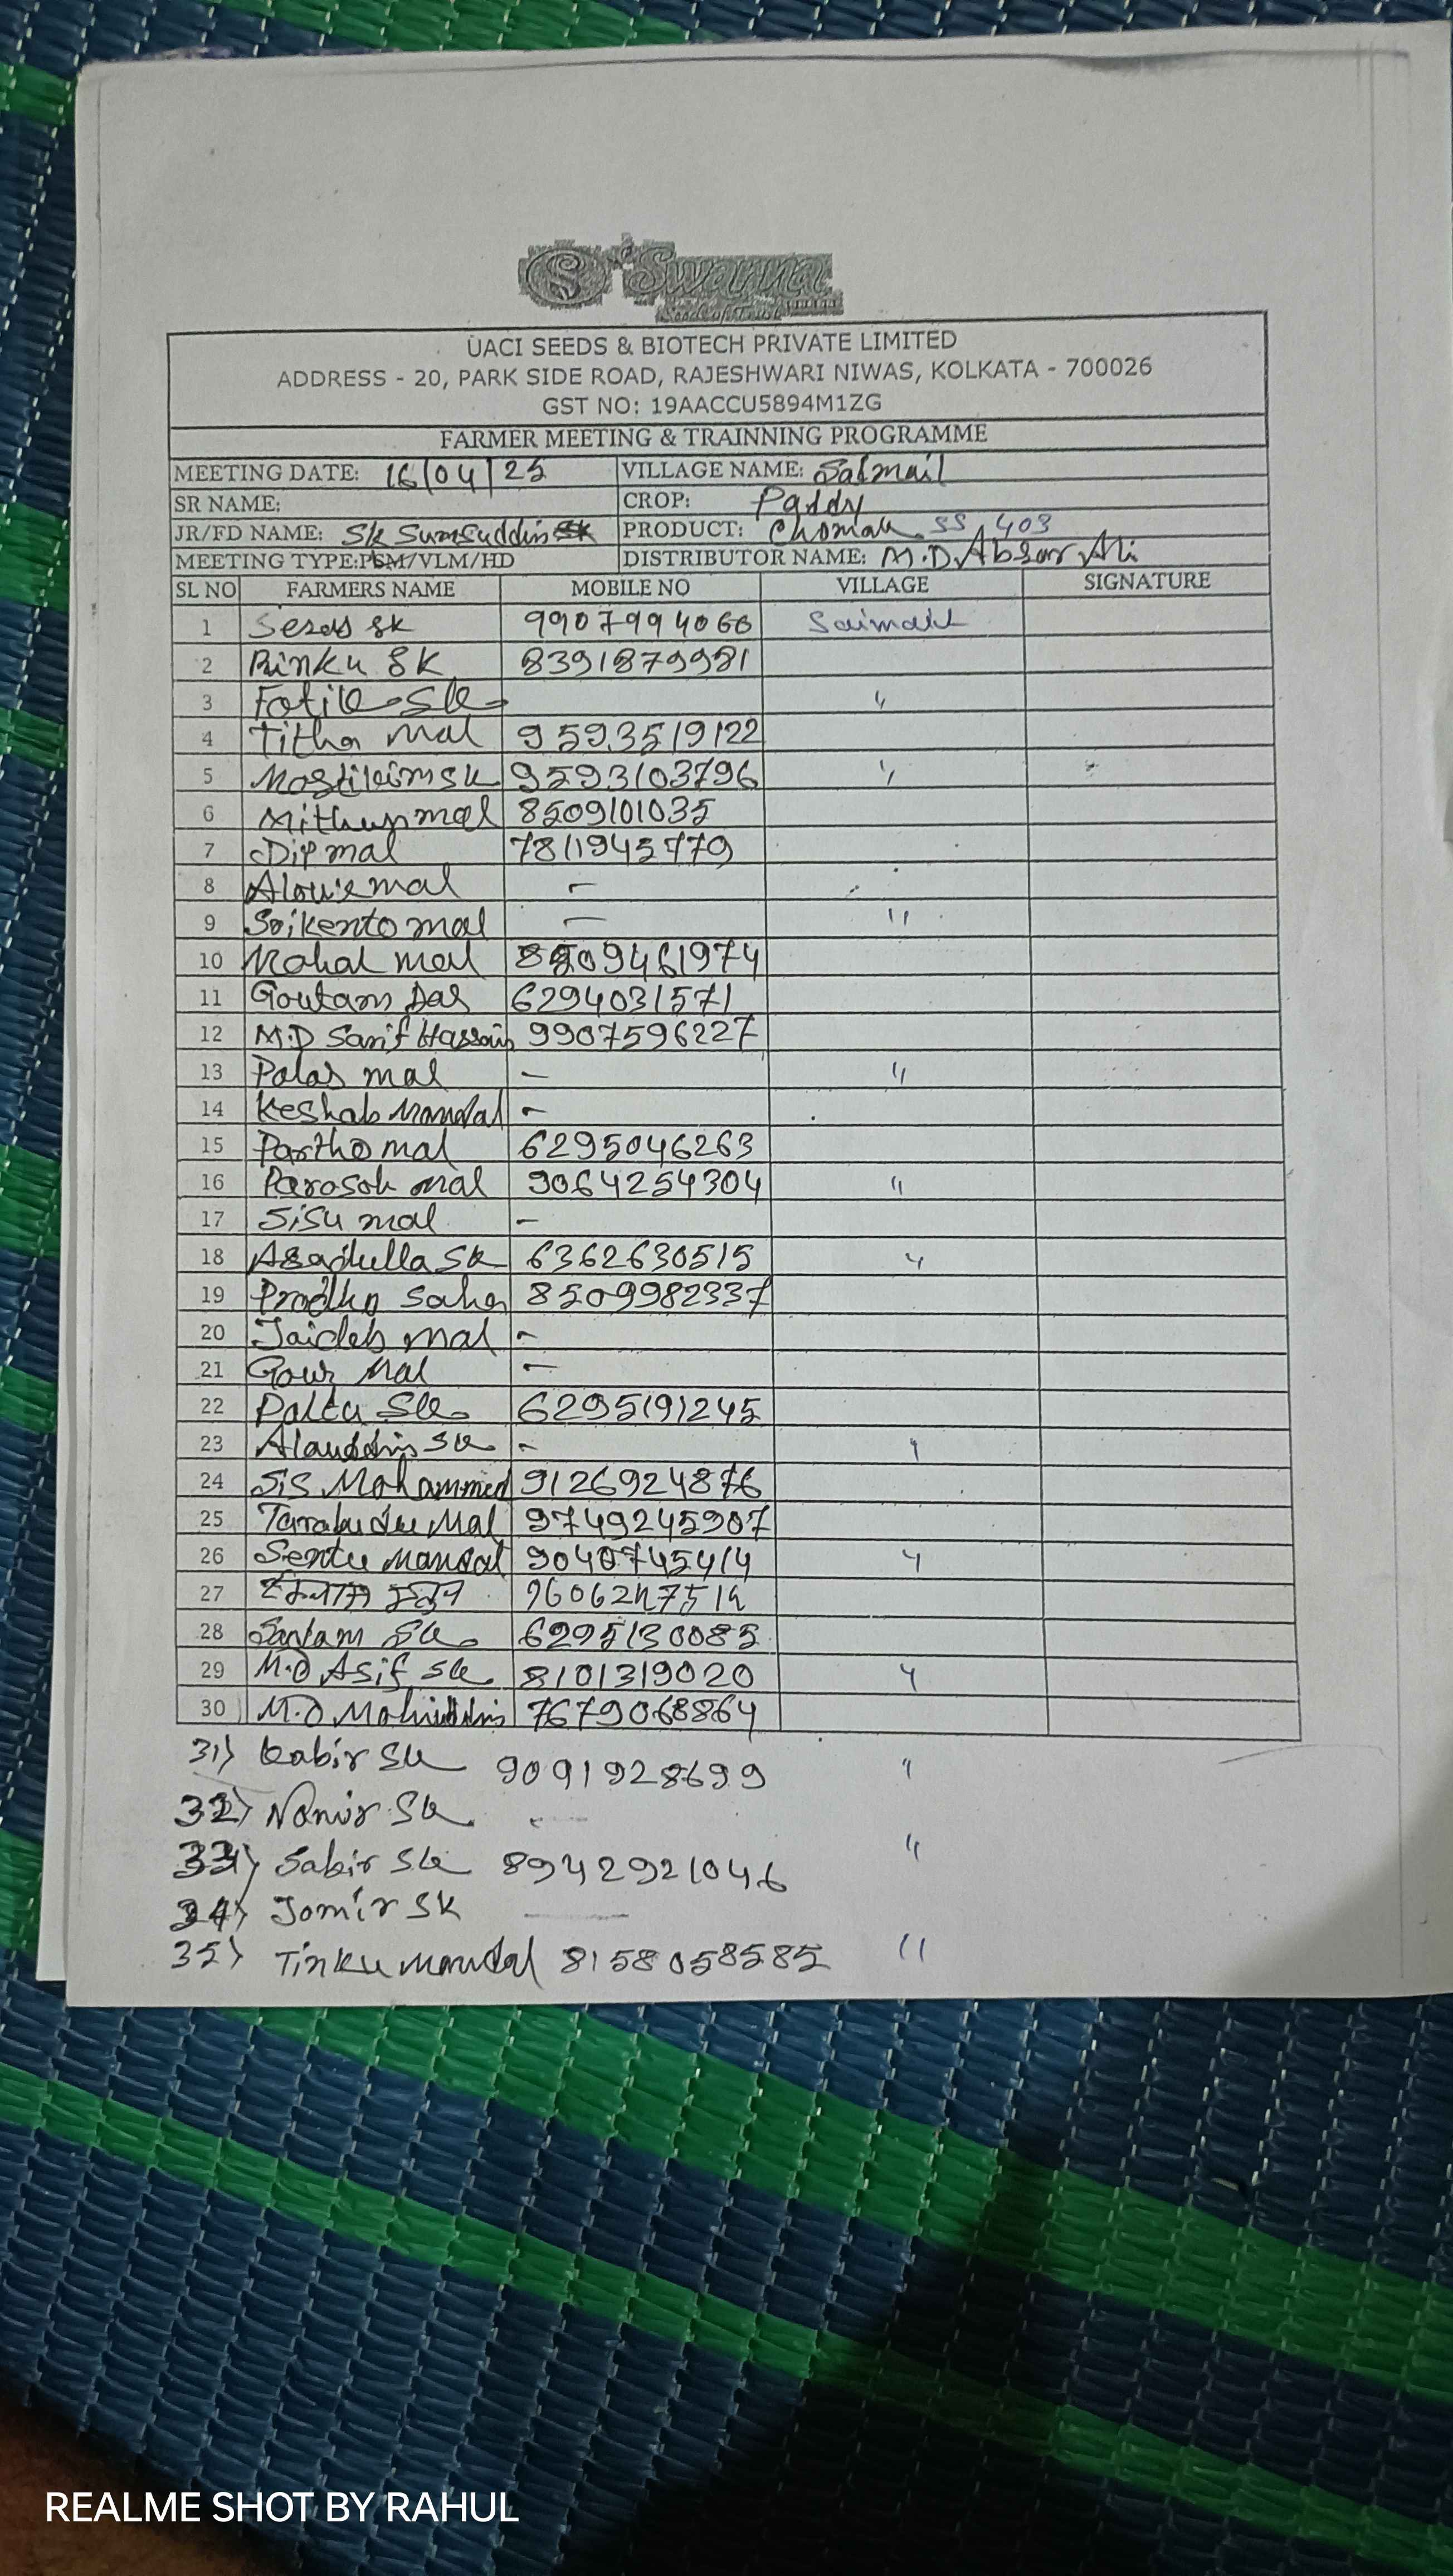 Swarna
Seeds of Trust
UACI SEEDS & BIOTECH PRIVATE LIMITED
ADDRESS - 20, PARK SIDE ROAD, RAJESHWARI NIWAS, KOLKATA - 700026
GST NO: 19AACCU5894M1ZG
FARMER MEETING & TRAINNING PROGRAMME
MEETING DATE: 16/04/25 VILLAGE NAME: Salmail
SR NAME: CROP: Paddy
JR/FD NAME: Sk Sumsuddin PRODUCT: Chomak SS 403
MEETING TYPE:PSM/VLM/HD DISTRIBUTOR NAME: M.D. Absar Ali
SL NO FARMERS NAME MOBILE NO VILLAGE SIGNATURE
1 Sk 9907994066
2 Rinku SK 8391879981
3 Sk "
4 Titha mal 9593519122
5 Mostikim sk 9593103796 "
6 Mithun mal 8509101035
7 Dip mal 7811945779
8 mal –
9 Srikento mal – "
10 Mohal mal 8509461974
11 Goutam Das 6294031571
12 M.D Sarif Hassain 9907596227
13 Palas mal – "
14 Keshab Mandal –
15 Partho mal 6295046263
16 Parosoh mal 9064254304 "
17 Sisu mal –
18 Asadulla SK 6362630515 "
19 Prodho Saha 8509982337
20 Jaideb mal –
21 Gour Mal –
22 Paltu Sk 6295191245
23 Alauddin Sk – "
24 Sis Mohammed 9126924876
25 Mal 9749245907
26 Sentu Mandal 9040745414 "
27 9606247514
28 Sk 6295130085
29 M.D Asif Sk 8101319020 "
30 M.D Mohiuddin 7679068864
31) Kabir Sk 9091928699 "
32) Sk –
33) Sabir Sk 8942921046 "
34) Jomir SK –
35) Tinku mandal 8158058585 "
REALME SHOT BY RAHUL